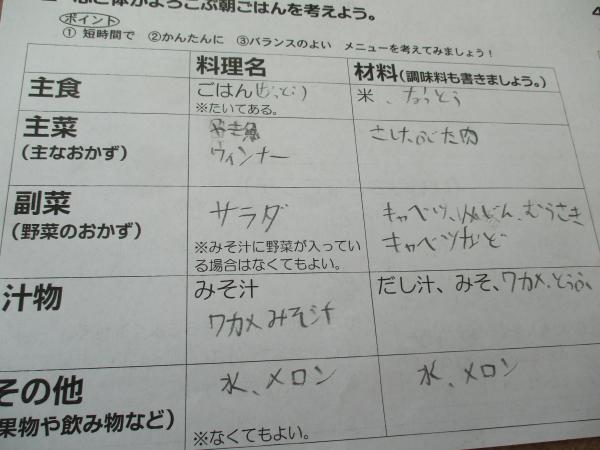 心と体がよろこぶ朝ごはんを考えよう。
ポイント
① 短時間で ②かんたんに ③バランスのよい メニューを考えてみましょう！
料理名 材料(調味料も書きましょう。)
主食 ごはん 米、なっとう
※たいてある。
主菜 やき魚 さけ、ぶた肉
(主なおかず) ウィンナー
副菜 サラダ キャベツ、にんじん、むらさき
(野菜のおかず) キャベツなど
※みそ汁に野菜が入ってい
る場合はなくてもよい。
汁物 みそ汁 だし汁、みそ、ワカメ、とうふ、
ワカメみそ汁
その他 水、メロン 水、メロン
果物や飲み物など)
※なくてもよい。